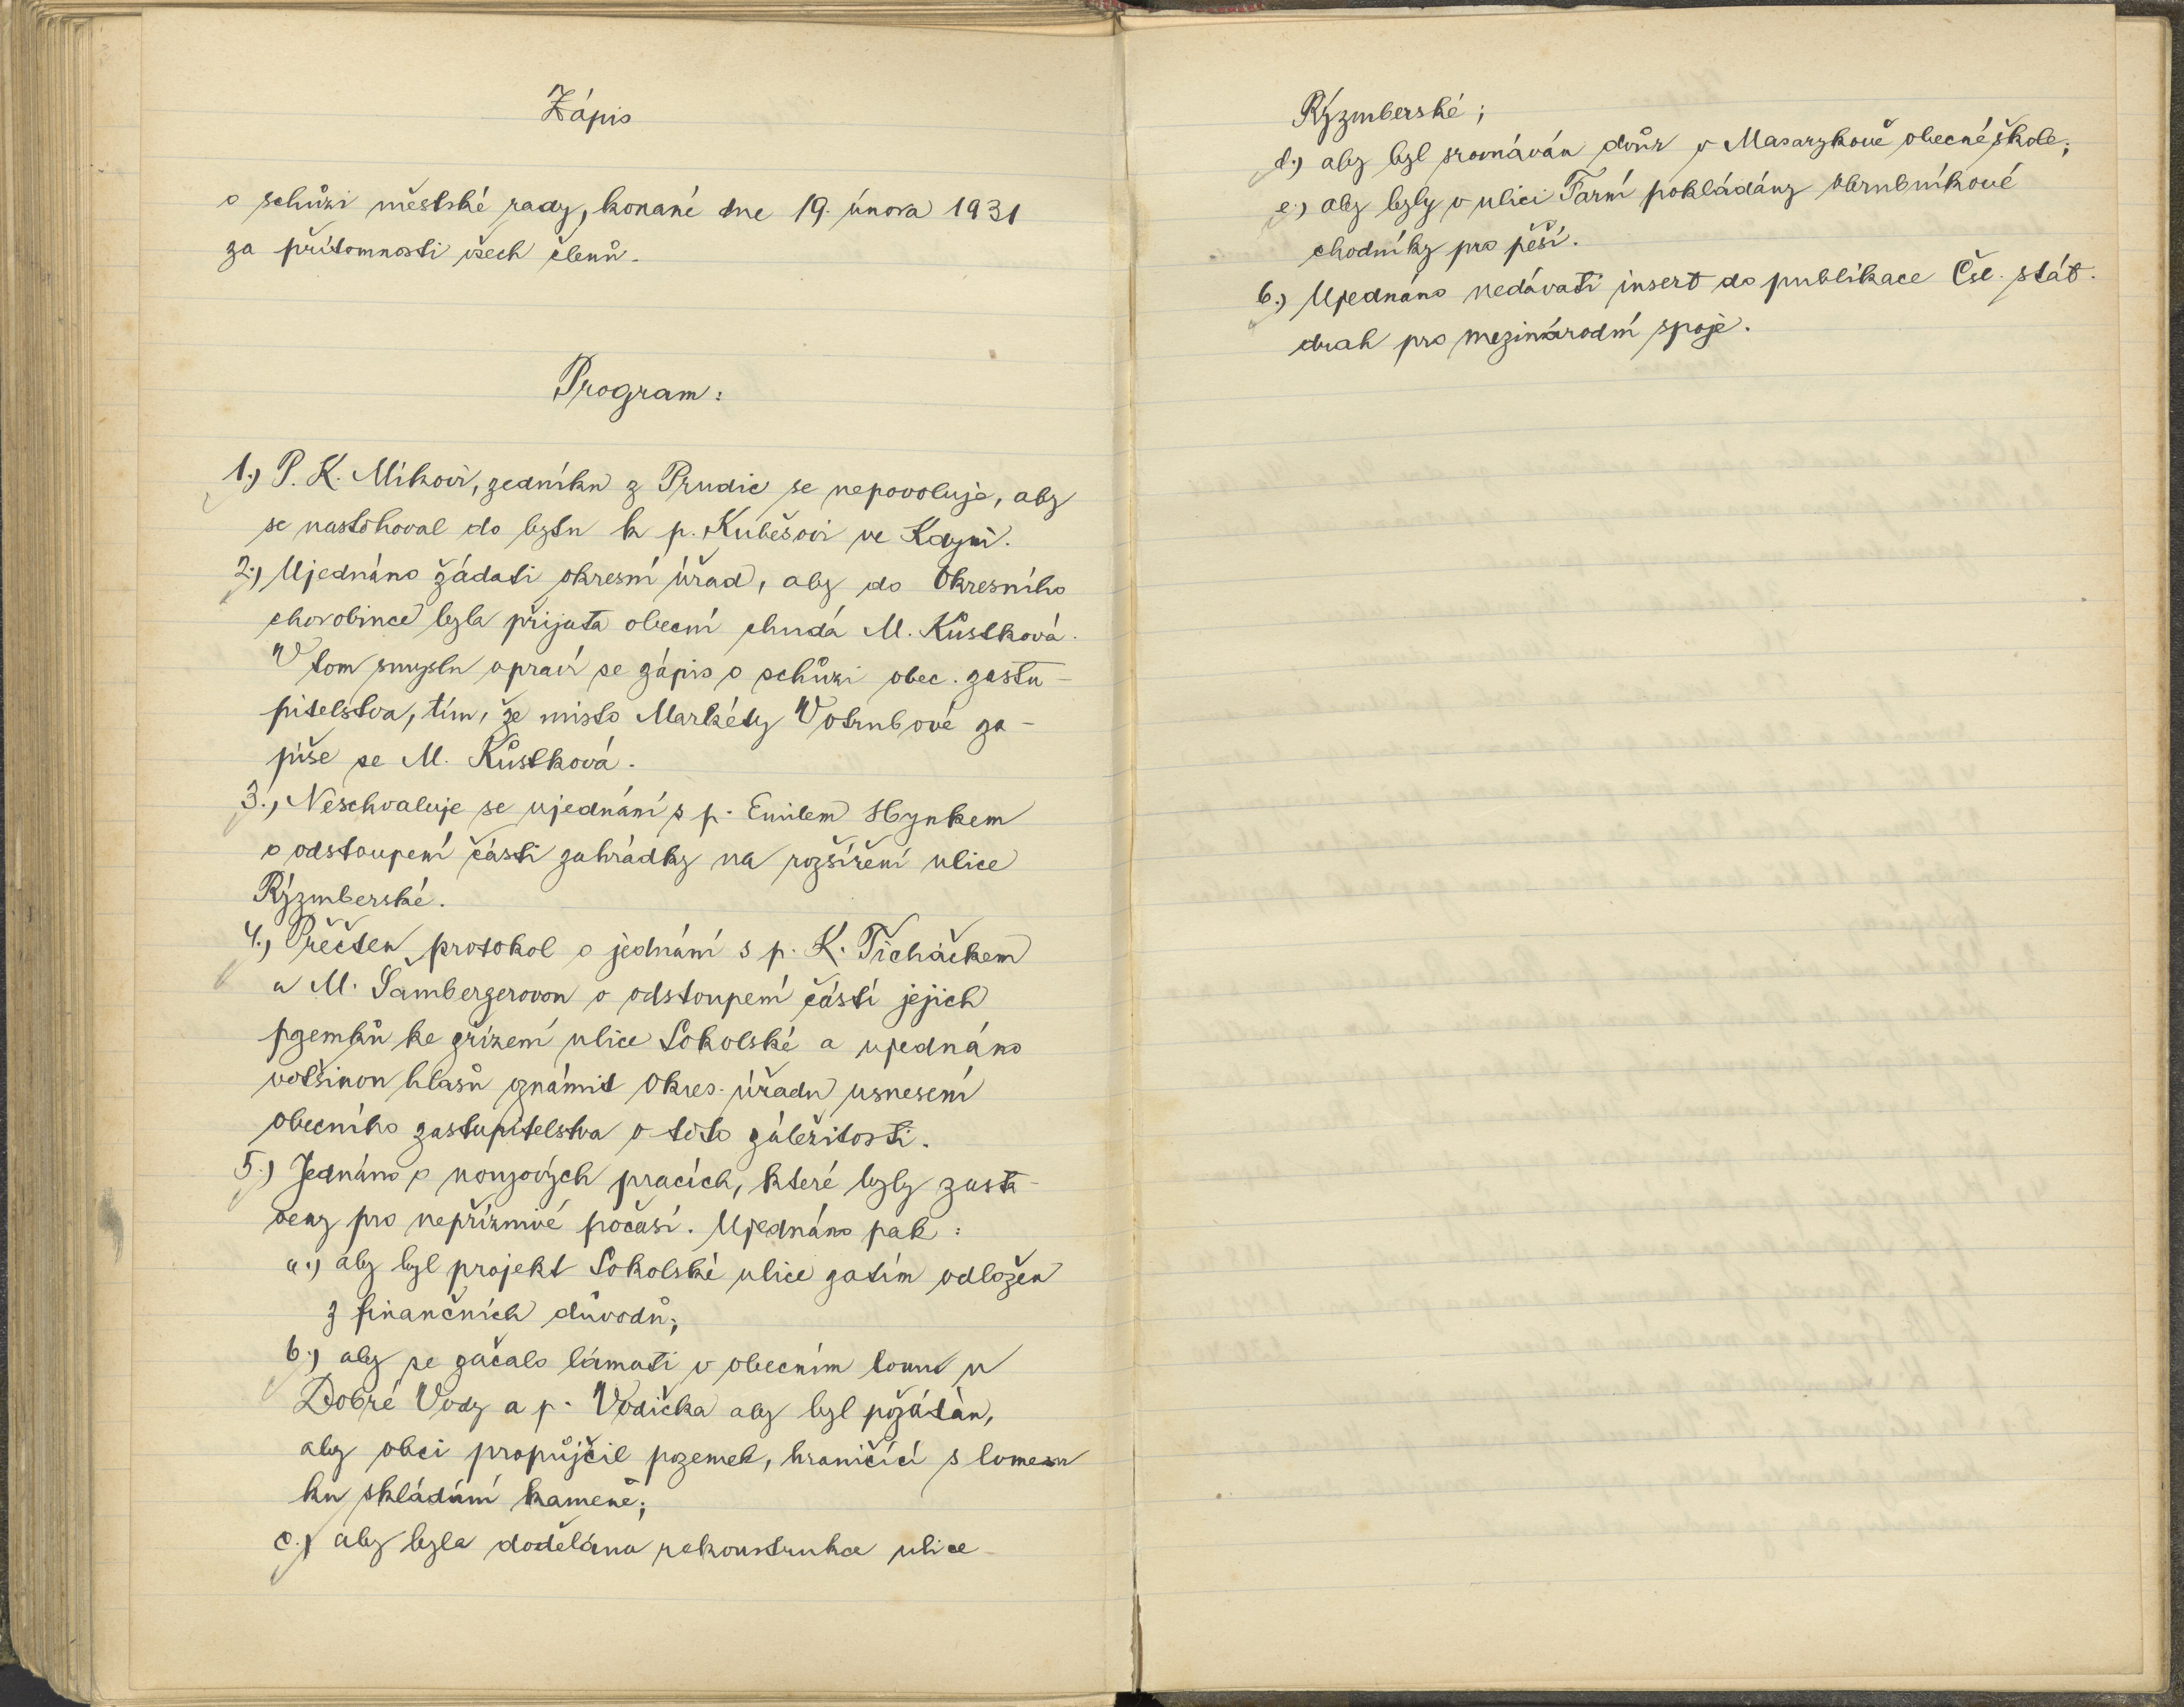 Zápis
o schůzi městské rady, konané dne 19. února 1931
za přítomnosti všech členů.
Program:
1.) P. K. Mikovi, zedníku z Prudic se nepovoluje, aby
se nastěhoval do bytu k p. Kubešovi ve Kdyni.
2.) Ujednáno žádati okresní úřad, aby do Okresního
chorobince byla přijata obecní chudá M. Kůstková.
V tom smyslu opraví se zápis o schůzi obec. zastu-
pitelstva, tím, že místo Markéty Votrubové za-
píše se M. Kůstková.
3.) Neschvaluje se ujednání s p. Emilem Hynkem
o odstoupení části zahrádky na rozšíření ulice
Rýzmberské.
4.) Přečten protokol o jednání s p. K. Ticháčkem
a M. Šambergerovou o odstoupení částí jejich
pzemků ke zřízení ulice Sokolské a ujednáno
většinou hlasů oznámit Okres. úřadu usnesení
obecního zastupitelstva o této záležitosti.
5.) Jednáno o nouzových pracích, které byly zasta-
veny pro nepříznivé počasí. Ujednáno pak:
a.) aby byl projekt Sokolské ulice zatím odložen
z finančních důvodů;
b.) aby se začalo lámati v obecním lomu u
Dobré Vody a p. Vodička aby byl požádán,
aby obci propůjčil pozemek, hraničící s lomem
ku skládání kamene;
c.) aby byla dodělána rekonstrukce ulice
Rýzmberské;
d.) aby byl srovnáván dvůr v Masarykově obecné škole;
e.) aby byly v ulici Farní pokládány obrubníkové
chodníky pro pěší.
6.) Ujednáno nedávati insert do publikace Čsl. stát.
drah pro mezinárodní spoje.